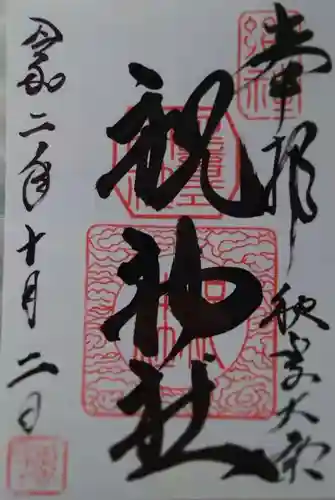 奉拝 秋季大祭
祝神社
令和二年十月二日